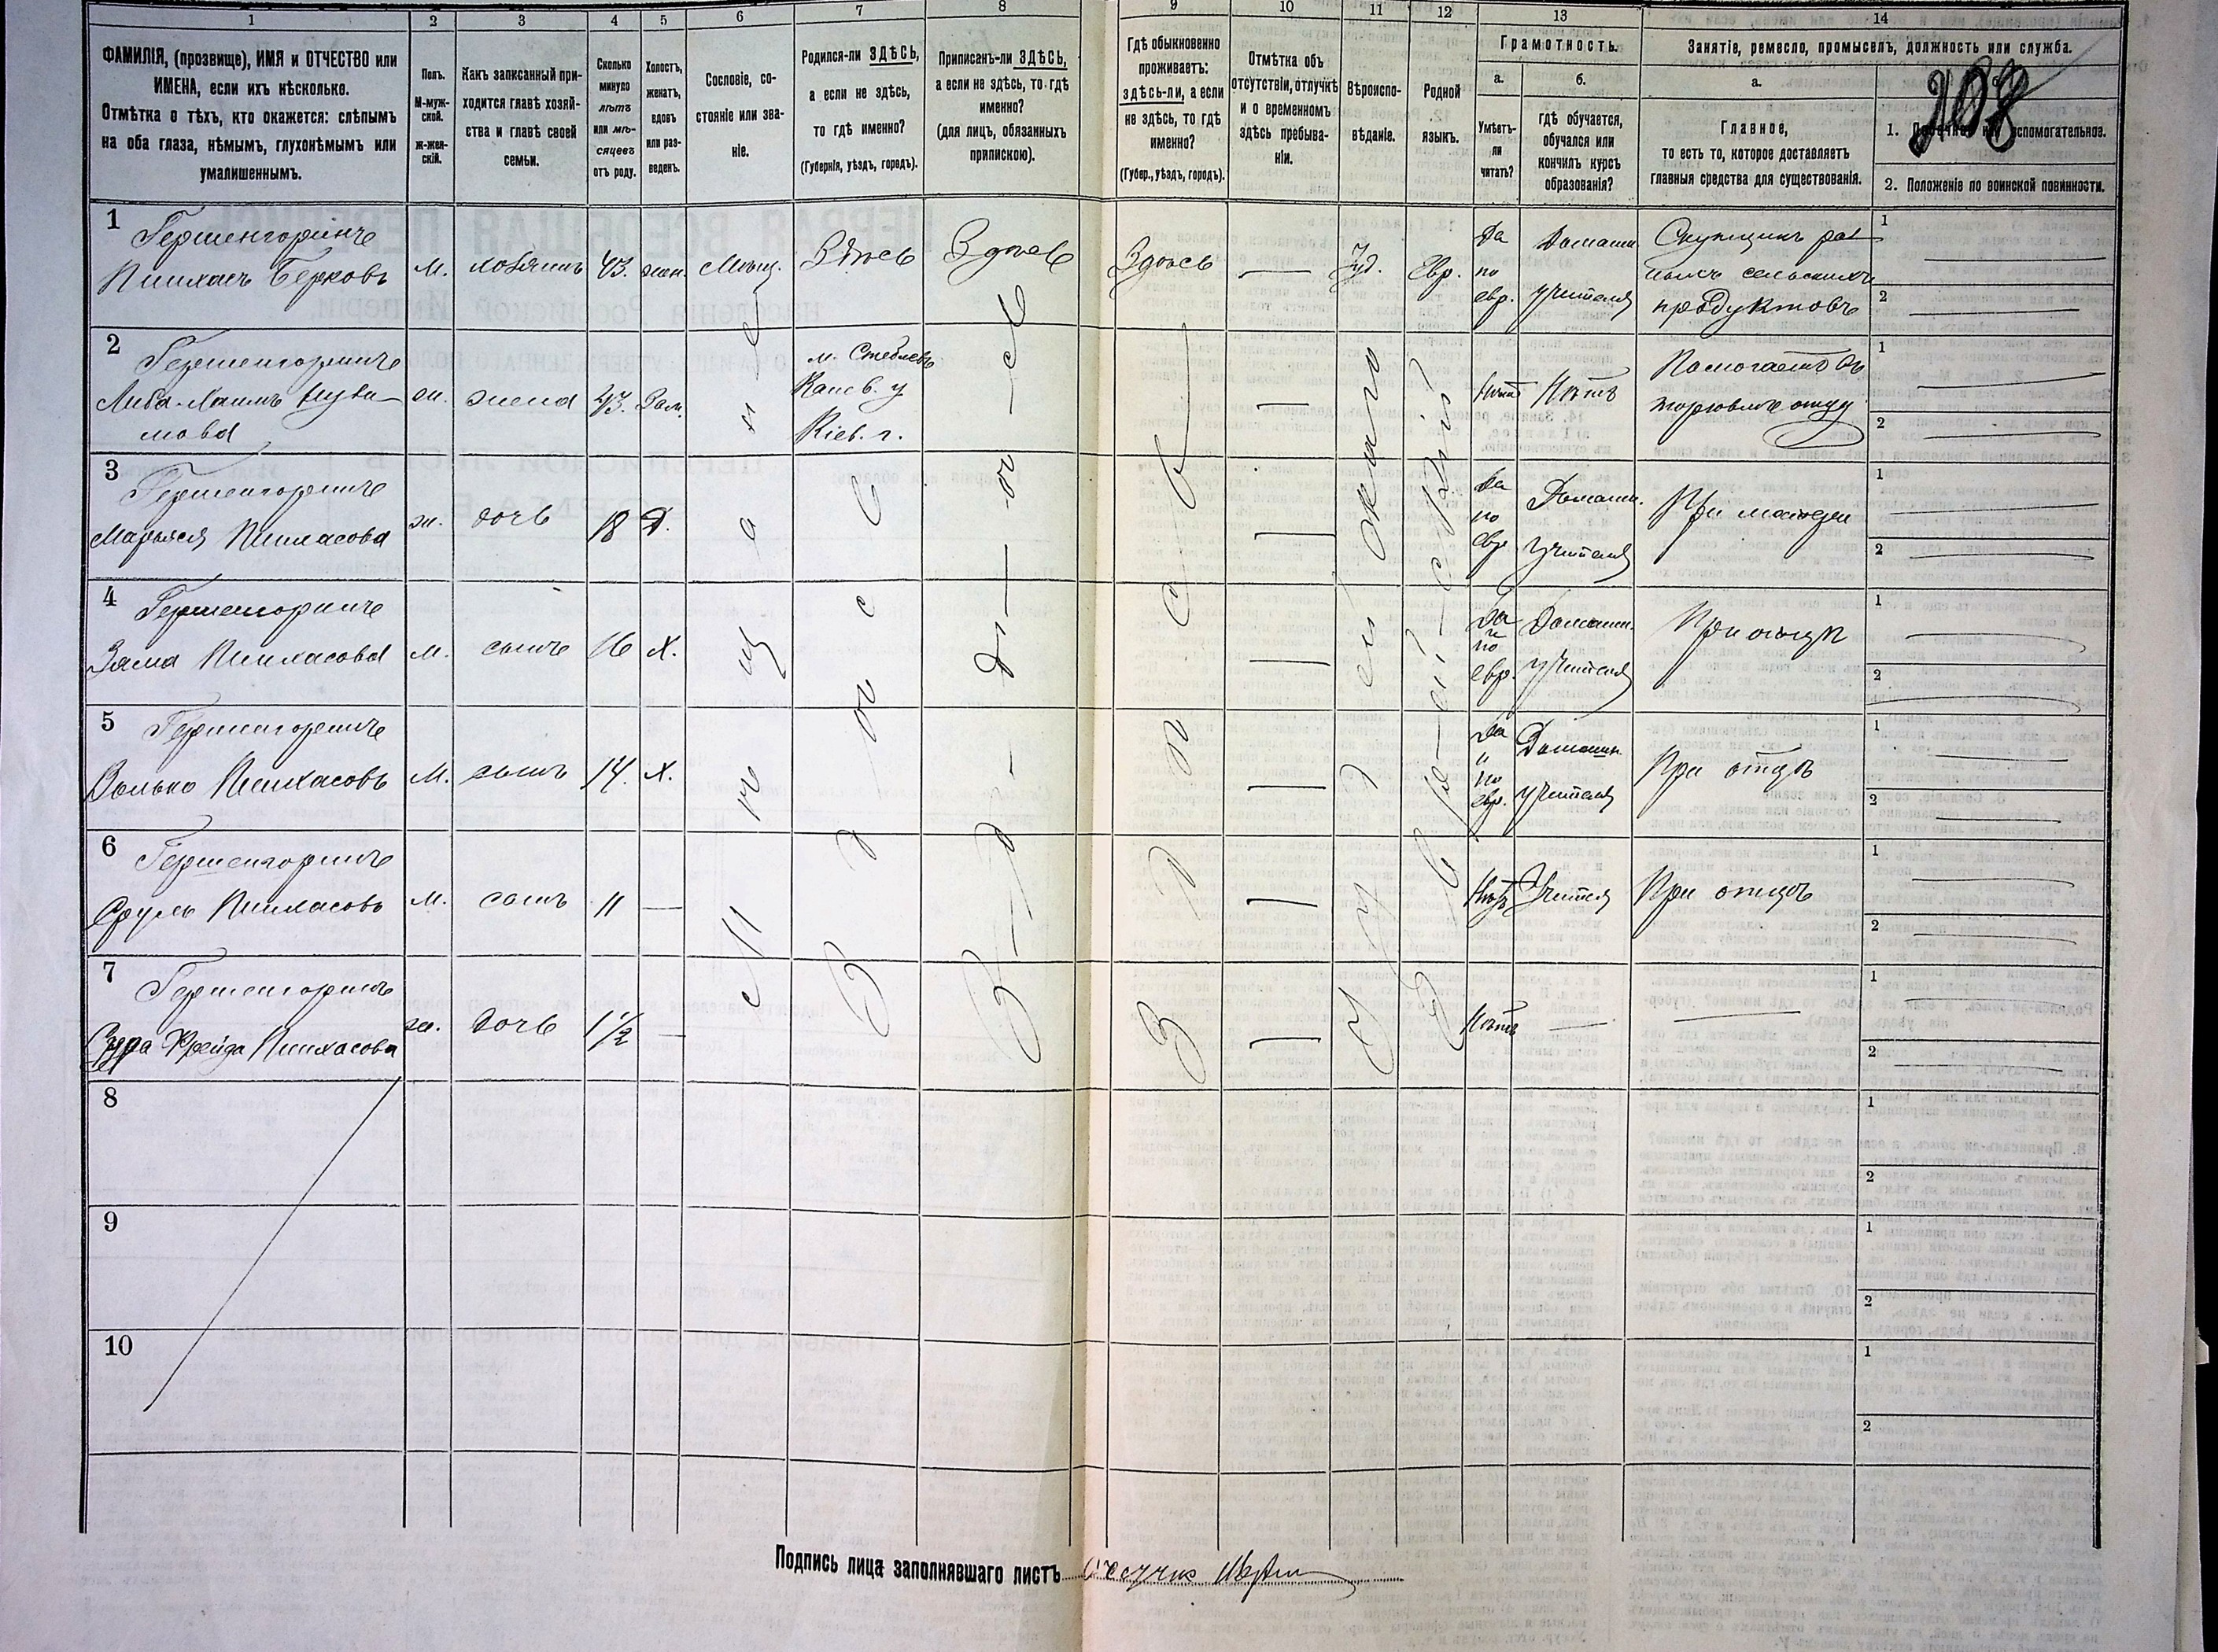 1
2
3
4
5
6
7
8
9
10
11
12
13
14
ФАМИЛІЯ, (прозвище), ИМЯ и ОТЧЕСТВО или
ИМЕНА, если ихъ нѣсколько.
Отмѣтка о тѣхъ, кто окажется: слѣпымъ
на оба глаза, нѣмымъ, глухонѣмымъ или
умалишеннымъ.
Полъ.
М-муж-
ской.
ж-жен-
скій.
Какъ записанный при-
ходится главѣ хозяй-
ства и главѣ своей
семьи.
Сколько
минуло
лѣтъ
или мѣ-
сяцевъ
отъ роду.
Холостъ,
женатъ,
вдовъ
или раз-
веденъ.
Сословіе, со-
стояніе или зва-
ніе.
Родился-ли ЗДѢСЬ,
а если не здѣсь,
то гдѣ именно?
(Губернія, уѣздъ, городъ).
Приписанъ-ли ЗДѢСЬ,
а если не здѣсь, то гдѣ
именно?
(для лицъ, обязанныхъ
припискою).
Гдѣ обыкновенно
проживаетъ:
здѣсь-ли, а если
не здѣсь, то гдѣ
именно?
(Губер., уѣздъ, городъ).
Отмѣтка объ
отсутствіи, отлучкѣ
и о временномъ
здѣсь пребыва-
ніи.
Вѣроиспо-
вѣданіе.
Родной
языкъ.
Грамотность.
а.
Умѣетъ-
ли
читать?
б.
гдѣ обучается,
обучался или
кончилъ курсъ
образованія?
Занятіе, ремесло, промыселъ, должность или служба.
а.
Главное,
то есть то, которое доставляетъ
главныя средства для существованія.
208
1. вспомогательное.
2. Положеніе по воинской повинности.
1
Гершенгоринъ
Пинхасъ Берковъ
м. хозяинъ 43. жен. Мѣщ. Здѣсь Здѣсь Здѣсь — Іуд. Евр.
Да
по
евр.
Домашн.
учителя
Скупщикъ
сельскихъ
продуктовъ
1
2
2
Гершенгоринъ
Либа
мова
ж. жена 43. Зам.
м. Стеблевъ
Канев. у
Кіев. г.
—
Нѣтъ Нѣтъ
Помогаетъ въ
торговлѣ отцу
1
2
3
Гершенгоринъ
Марьяся Пинхасова
ж. дочь 18 Д.
—
Да
по
евр.
Домашн.
учителя
При матери
1
2
4
Гершенгоринъ
Зяма Пинхасовъ
м. сынъ 16 Х.
—
Да
по
евр.
Домашн.
учителя
При отцѣ
1
2
5
Гершенгоринъ
Волько Пинхасовъ
м. сынъ 14. Х.
—
Да
по
евр.
Домашн.
учителя
При отцѣ
1
2
6
Гершенгоринъ
Сруль Пинхасовъ
м. сынъ 11 —
—
Нѣтъ Учителя
При отцѣ
1
2
7
Гершенгоринъ
Сура Фрейда Пинхасова
ж. дочь 1 1/2 —
—
Нѣтъ —
1
2
8
1
2
9
1
2
10
1
2
Подпись лица заполнявшаго листъ